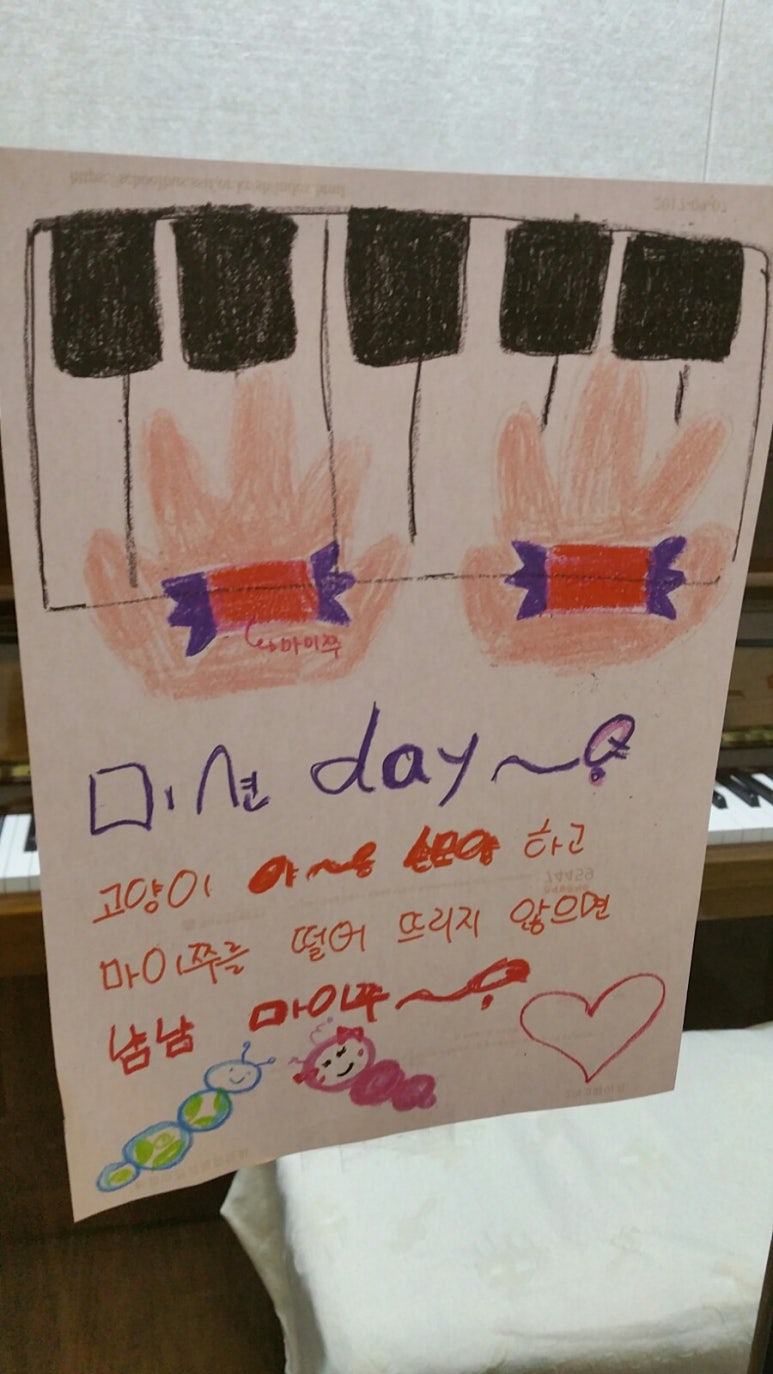 마이쭈
미션 day~!
고양이 야~옹 손모양 하고
마이쭈를 떨어 뜨리지 않으면
냠냠 마이쭈~!